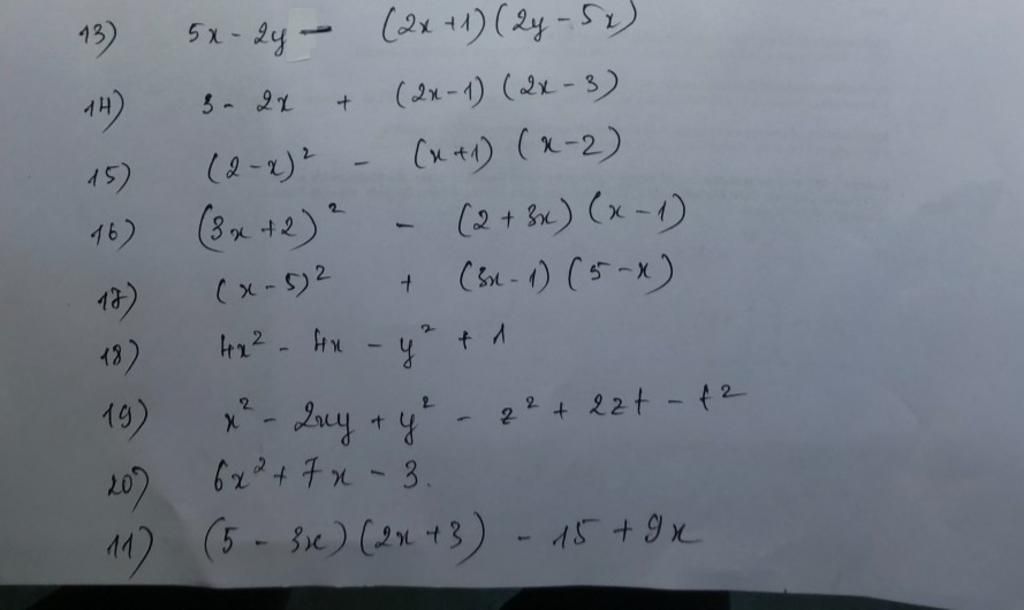 13) 5x - 2y - (2x+1)(2y-5x)
14) 3 - 2x + (2x-1)(2x-3)
15) (2-x)² - (x+1)(x-2)
16) (3x+2)² - (2+3x)(x-1)
17) (x-5)² + (3x-1)(5-x)
18) 4x² - 4x - y² + 1
19) x² - 2xy + y² - z² + 2zt - t²
20) 6x² + 7x - 3.
11) (5 - 3x)(2x+3) - 15 + 9x